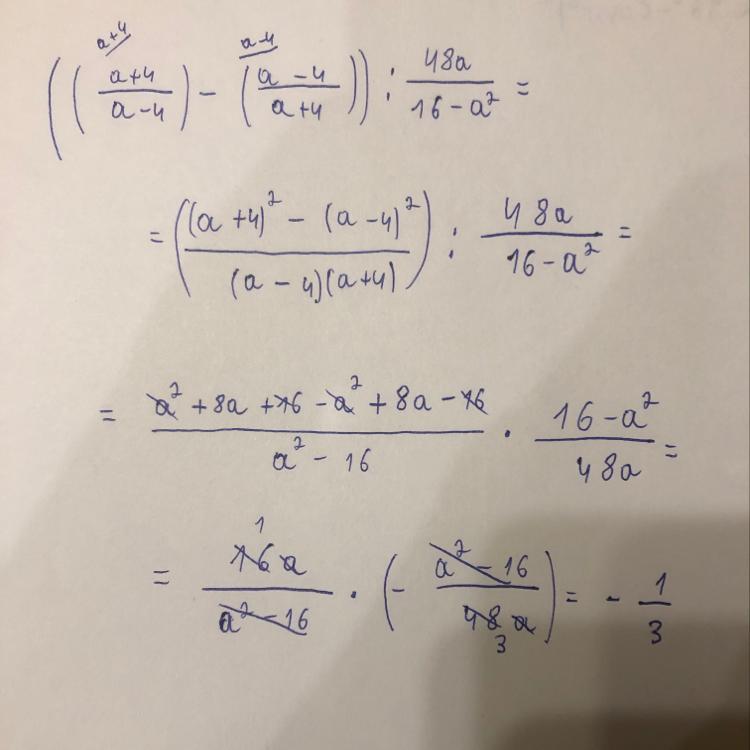 a+4 a-4
((a+4/a-4) - (a-4/a+4)) : 48a/16-a² =
= ((a+4)² - (a-4)²/(a-4)(a+4)) : 48a/16-a² =
= a²+8a+16-a²+8a-16/a²-16 · 16-a²/48a =
1
= 16a/a²-16 · (- a²-16/48a) = - 1/3
3